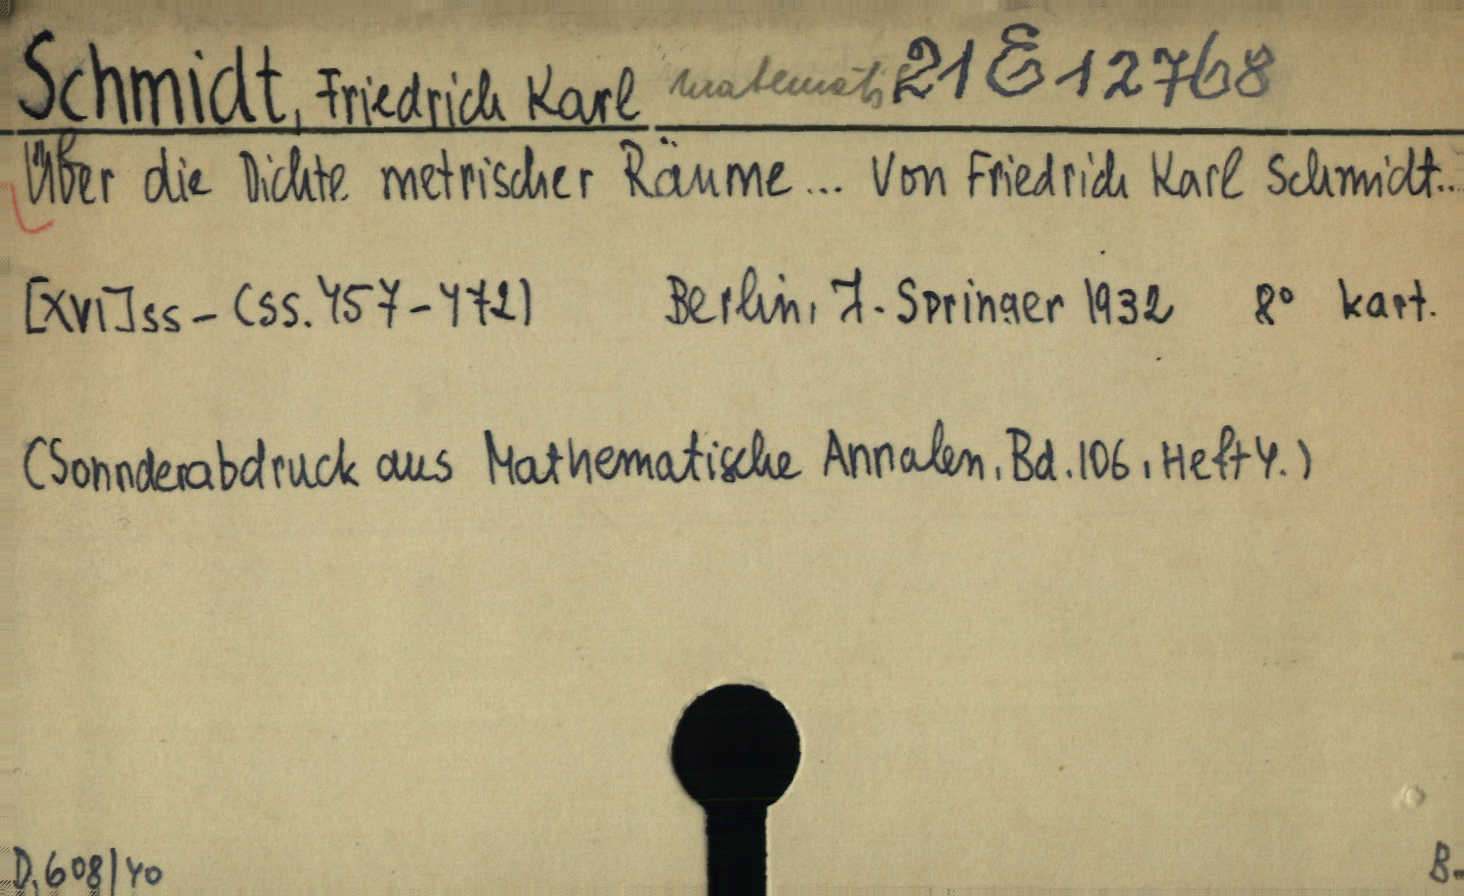 Schmidt, Friedrich Karl matematik 21 E 12768
Über die Dichte metrischer Räume... Von Friedrich Karl Schmidt..
[XVI]ss – (ss. 457–472) Berlin, J. Springer 1932 8° kart.
(Sonnderabdruck aus Mathematische Annalen, Bd. 106, Heft 4.)
D. 608/40 B-